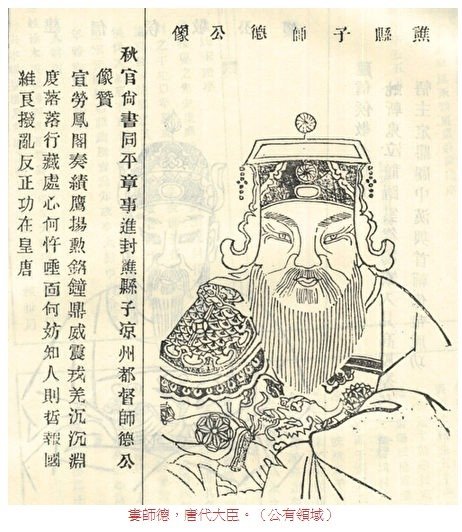 譙縣子師德公像
秋官尚書同平章事進封譙縣子凉州都督師德公
像贊
宣勞鳳閣奏績鷹揚勲銘鐘鼎威震戎羌沉沉淵
度落落行藏處心何忤唾面何妨知人則哲報國
維良撥亂反正功在皇唐
婁師德，唐代大臣。（公有領域）